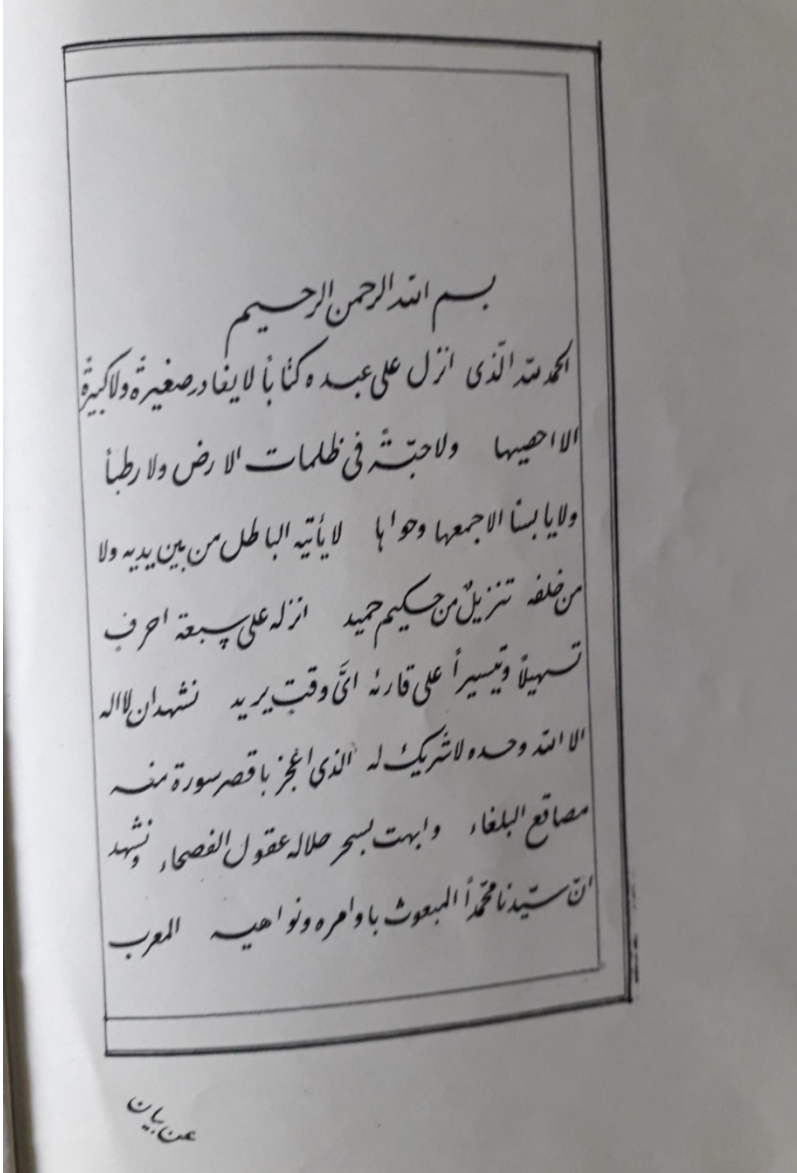 بسم الله الرحمن الرحيم
الحمد لله الّذى انزل على عبده كتاباً لا يغادر صغيرةً ولا كبيرةً
الا احصيها ولا حبّةً فى ظلمات الارض ولا رطباً
ولا يابسا الا جمعها وحواها لا يأتيه الباطل من بين يديه ولا
من خلفه تنزيلٌ من حكيم حميد انزله على سبعة احرفٍ
تسهيلاً وتيسيراً على قارئه اىَّ وقتٍ يريد نشهد ان لا اله
الا الله وحده لا شريك له الذى اعجز باقصر سورة منه
مصاقع البلغاء وابهت بسحر حلاله عقول الفصحاء ونشهد
انّ سيّدنا محمّداً المبعوث باوامره ونواهيه المعرب
عن بيان